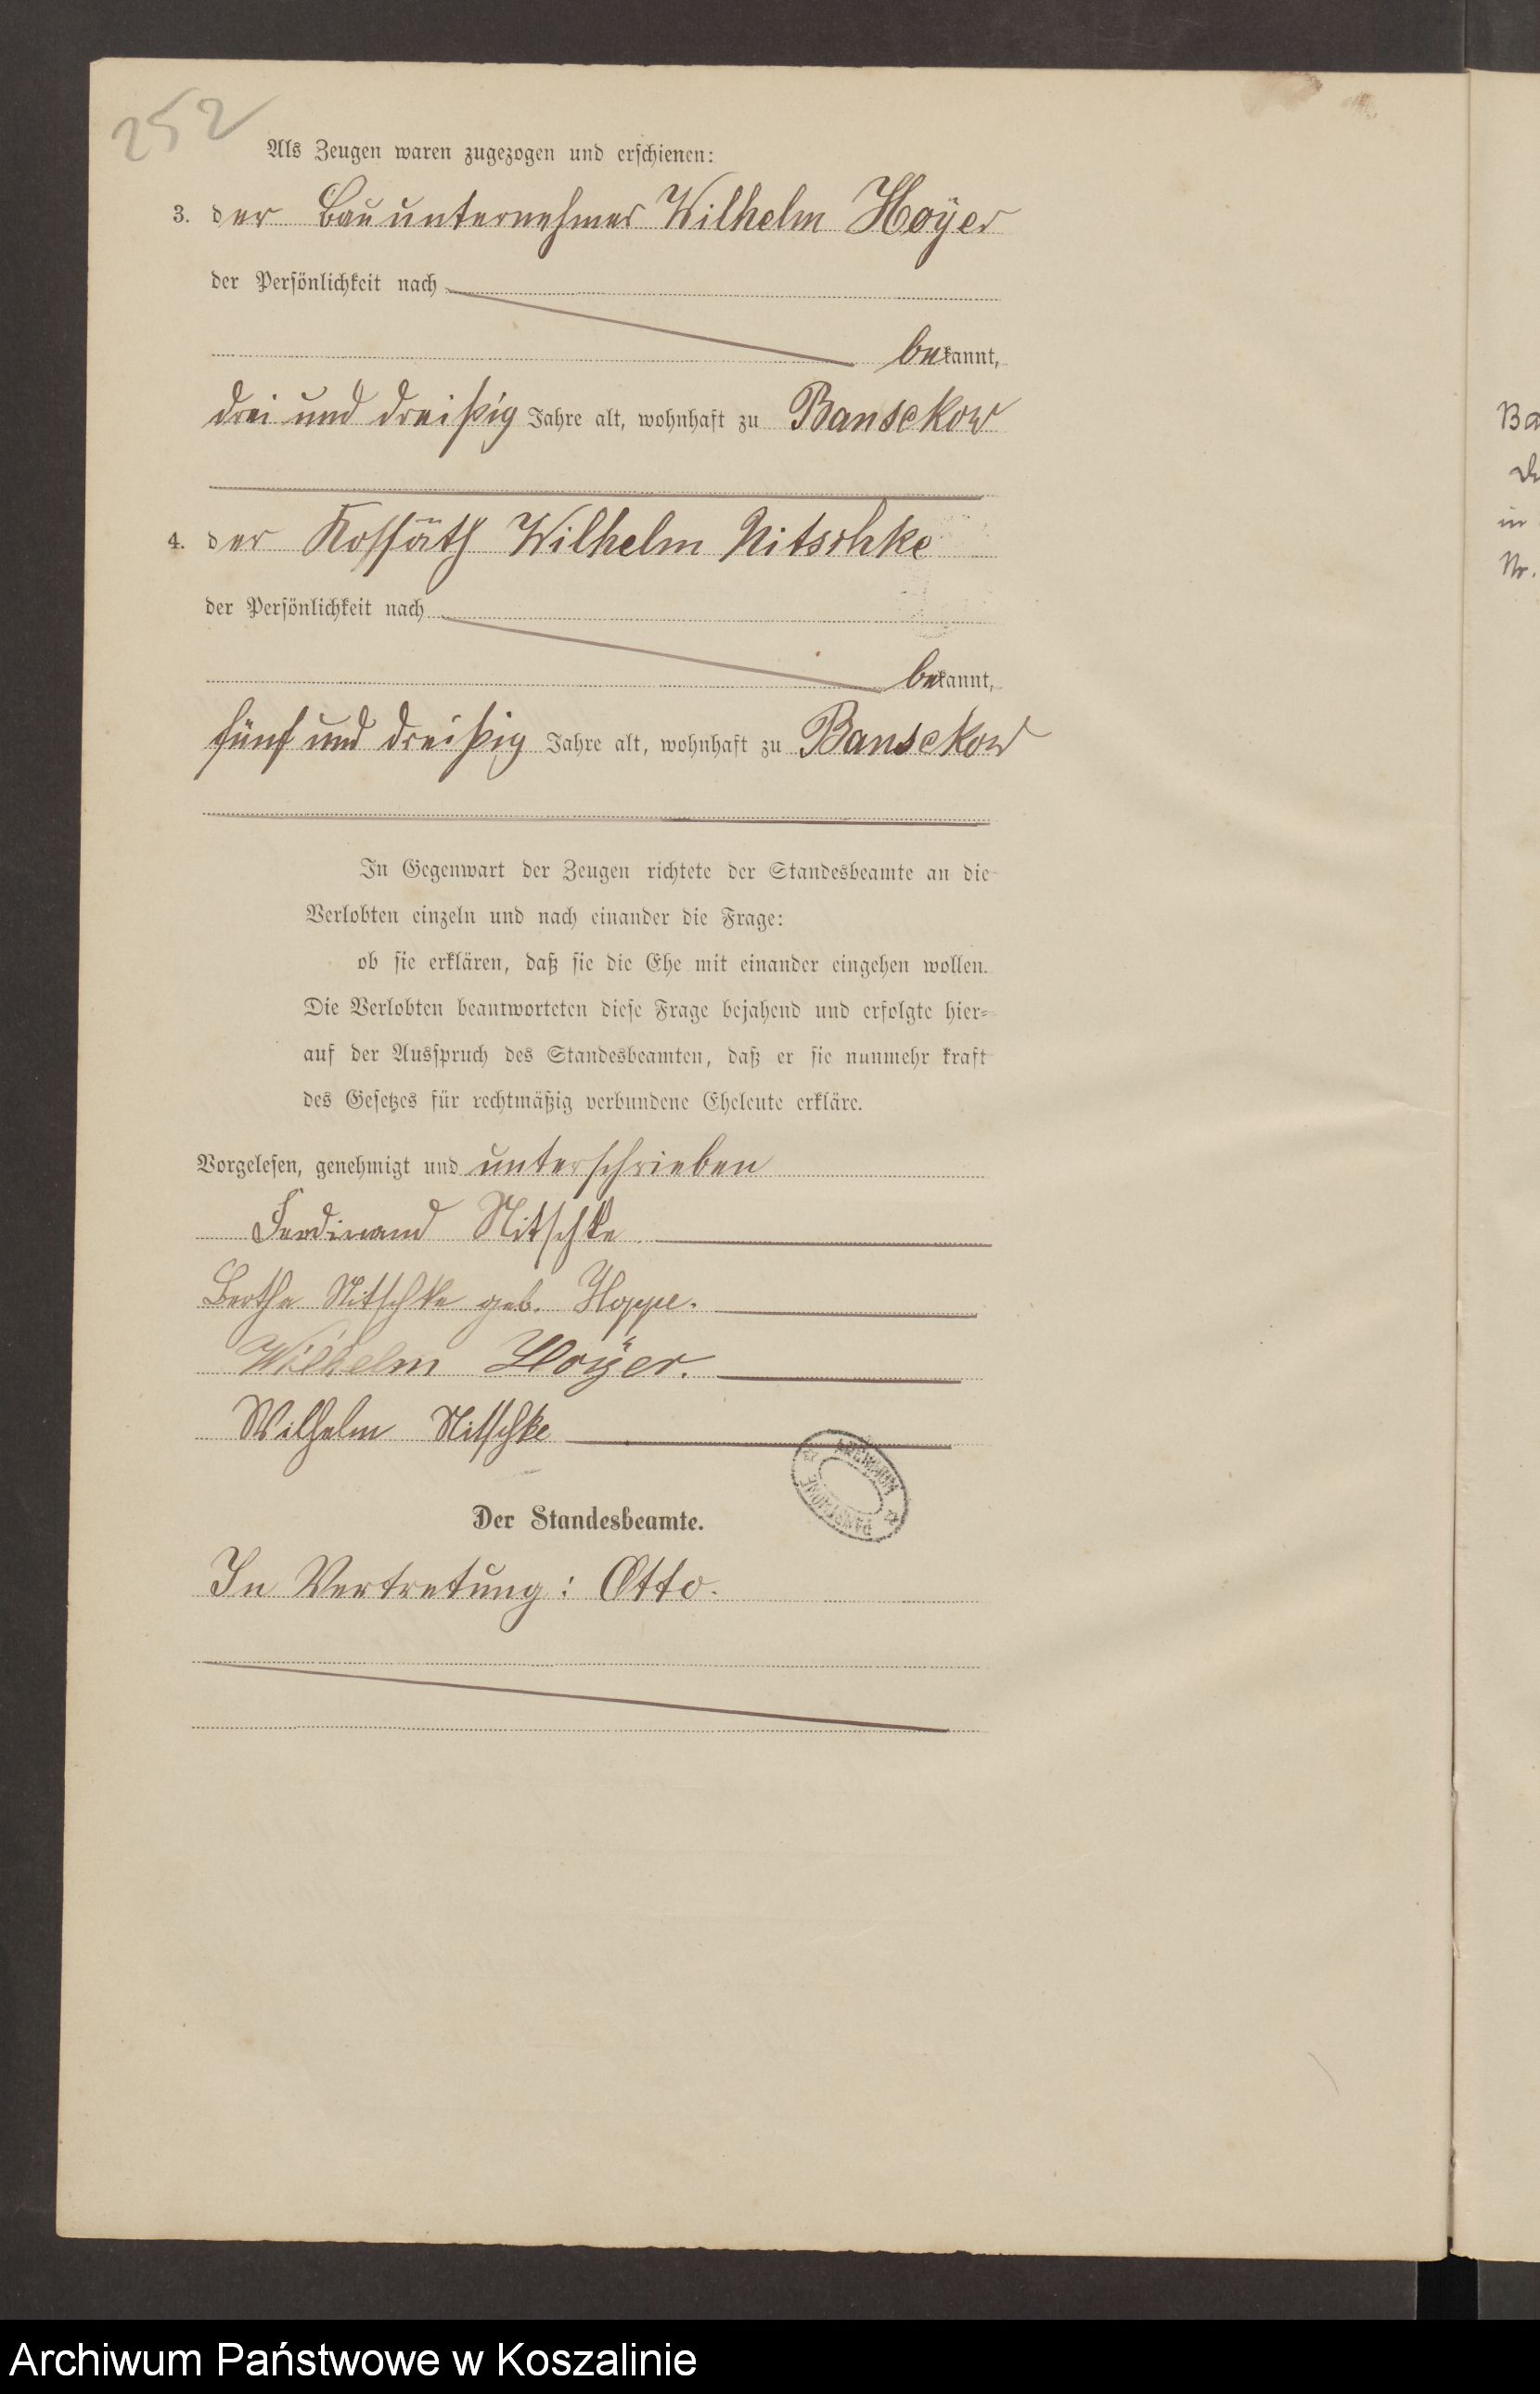 252
Als Zeugen waren zugezogen und erschienen:
3. der Bauunternehmer Wilhelm Hoÿer
der Persönlichkeit nach
bekannt,
drei und dreißig Jahre alt, wohnhaft zu Bansekow
4. der Kossäth Wilhelm Nitschke
der Persönlichkeit nach
bekannt,
fünf und dreißig Jahre alt, wohnhaft zu Bansekow
In Gegenwart der Zeugen richtete der Standesbeamte an die
Verlobten einzeln und nach einander die Frage:
ob sie erklären, daß sie die Ehe mit einander eingehen wollen.
Die Verlobten beantworteten diese Frage bejahend und erfolgte hier-
auf der Ausspruch des Standesbeamten, daß er sie nunmehr kraft
des Gesetzes für rechtmäßig verbundene Eheleute erkläre.
Vorgelesen, genehmigt und unterschrieben
Ferdinand Nitschke
Bertha Nitschke geb. Hoppe.
Wilhelm Hoÿer.
Wilhelm Nitschke
ARCHIWUM PAŃSTWOWE
Der Standesbeamte.
In Vertretung: Otto.
Ba
in
Nr.
Archiwum Państwowe w Koszalinie